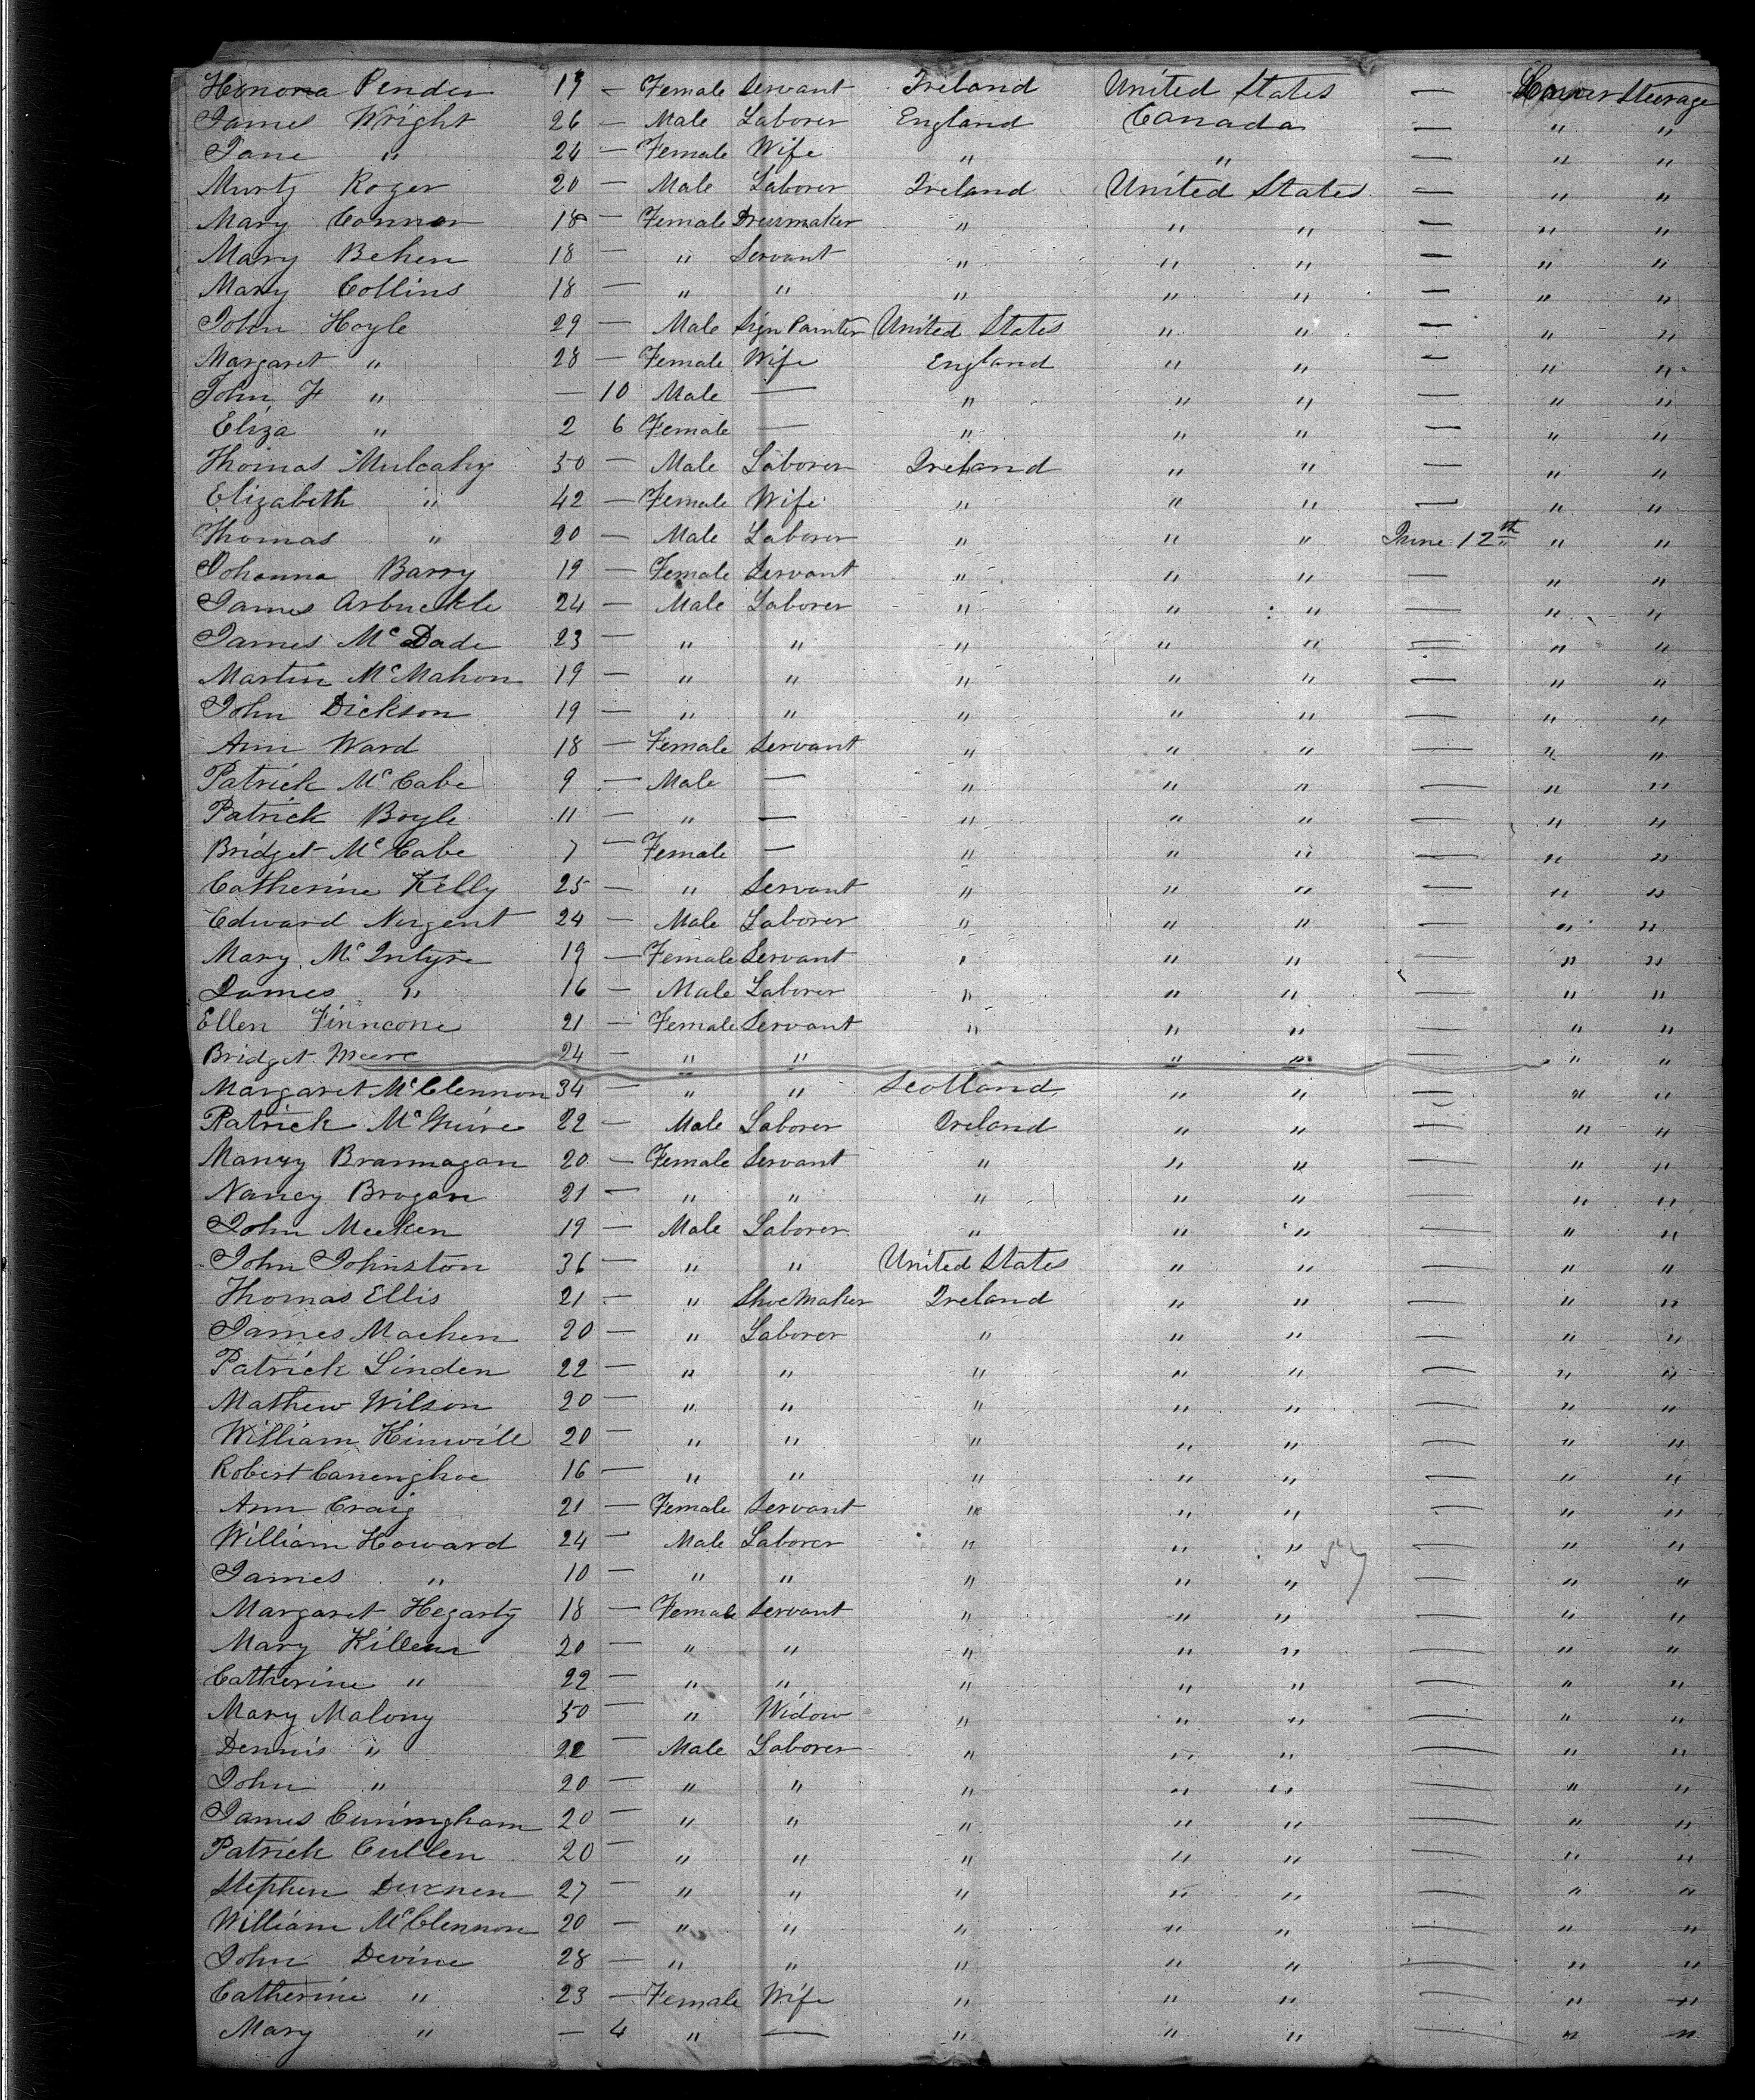 Honora Pender 19 — Female Servant Ireland United States — Lower Steerage
James Wright 26 — Male Laborer England Canada — " "
Jane " 24 — Female Wife " " — " "
Murty Roger 20 — Male Laborer Ireland United States — " "
Mary Connor 18 — Female Dressmaker " " " — " "
Mary Behen 18 — " Servant " " " — " "
Mary Collins 18 — " " " " " — " "
John Hoyle 29 — Male Sign Painter United States " " — " "
Margaret " 28 — Female Wife England " " — " "
John H " — 10 Male — " " " — " "
Eliza " 2 6 Female — " " " — " "
Thomas Mulcahy 50 — Male Laborer Ireland " " — " "
Elizabeth " 42 — Female Wife " " " — " "
Thomas " 20 — Male Laborer " " " June 12th " "
Johanna Barry 19 — Female Servant " " " — " "
James Arbuckle 24 — Male Laborer " " " — " "
James McDade 23 — " " " " " — " "
Martin McMahon 19 — " " " " " — " "
John Dickson 19 — " " " " " — " "
Ann Ward 18 — Female Servant " " " — " "
Patrick McCabe 9 — Male — " " " — " "
Patrick Boyle 11 — " — " " " — " "
Bridget McCabe 7 — Female — " " " — " "
Catherine Kelly 25 — " Servant " " " — " "
Edward Nugent 24 — Male Laborer " " " — " "
Mary McIntyre 19 — Female Servant " " " — " "
James " 16 — Male Laborer " " " — " "
Ellen Finncone 21 — Female Servant " " " — " "
Bridget Meere 24 — " " " " — " "
Margaret McClennon 34 — " " Scotland " " — " "
Patrick McGuire 22 — Male Laborer Ireland " " — " "
Mary Brannagan 20 — Female Servant " " " — " "
Nancy Brogan 21 — " " " " " — " "
John Meeken 19 — Male Laborer " " " — " "
John Johnston 36 — " " United States " " — " "
Thomas Ellis 21 — " Shoe Maker Ireland " " — " "
James Machen 20 — " Laborer " " " — " "
Patrick Linden 22 — " " " " " — " "
Mathew Wilson 20 — " " " " " — " "
William Hinwill 20 — " " " " " — " "
Robert Canenghoe 16 — " " " " " — " "
Ann Craig 21 — Female Servant " " " — " "
William Howard 24 — Male Laborer " " " — " "
James " 10 — " " " " " 57 — " "
Margaret Hegarty 18 — Female Servant " " " — " "
Mary Killen 20 — " " " " " — " "
Catherine " 22 — " " " " " — " "
Mary Malony 50 — " Widow " " " — " "
Dennis " 22 — Male Laborer " " " — " "
John " 20 — " " " " " — " "
James Cuningham 20 — " " " " " — " "
Patrick Cullen 20 — " " " " " — " "
Stephen 27 — " " " " " — " "
William McClennon 20 — " " " " " — " "
John Devine 28 — " " " " " — " "
Catherine " 23 — Female Wife " " " — " "
Mary " — 4 " — " " " — " "